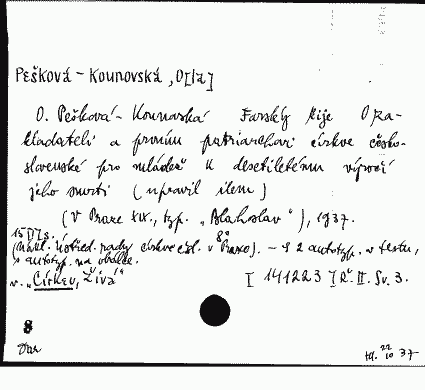 Pešková - Kounovská, O[lga]
O. Pešková-Kounovská Farský žije O za-
kladateli a prvním patriarchovi církve česko-
slovenské pro mládež k desetiletému výročí
jeho smrti (upravil
(V Praze XIX., typ. "Blahoslav"), 1937.
15 [?] s. 8°
(Nákl. Ústřed. rady církve čsl. v Praze). - S 2 autotyp. v textu,
s autotyp. na obálce.
v. "Církev Živá" I 141223 I Ř. II. Sv. 3.
8
22
10 37